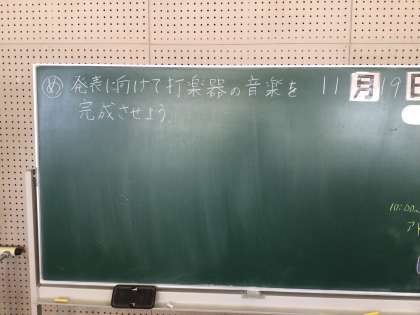 め 発表に向けて打楽器の音楽を
完成させよう。
11月19日
10:00~